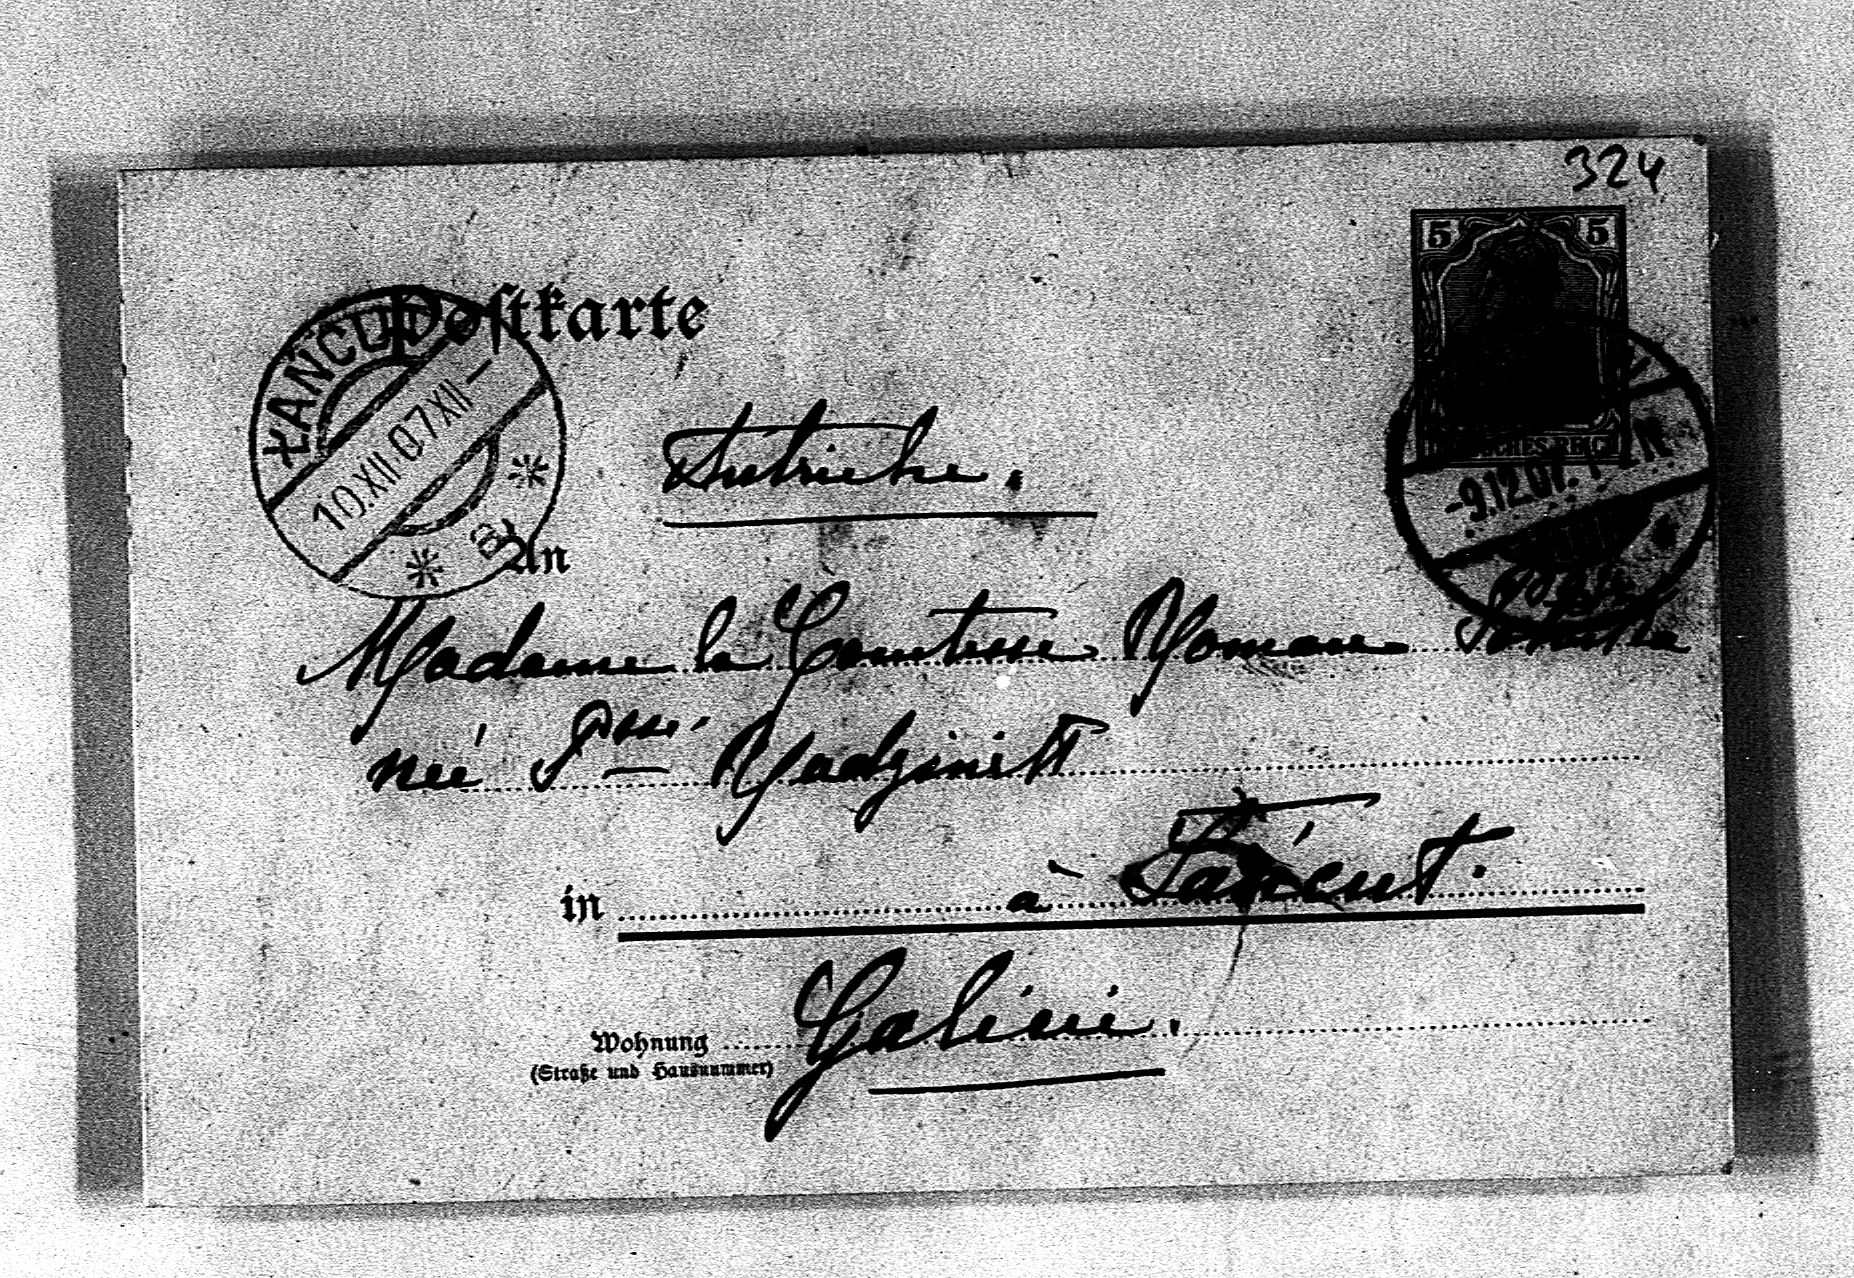 324
5 5
Postkarte
ŁAŃCUT
10.XII.07.XII–
a
DEUTSCHES REICH
-9.12.07.
Autriche.
An
Madame la Comtesse Roman Potocka
née Psse Radziwiłł
in à Łańcut.
Galicie.
Wohnung
(Straße und Hausnummer)